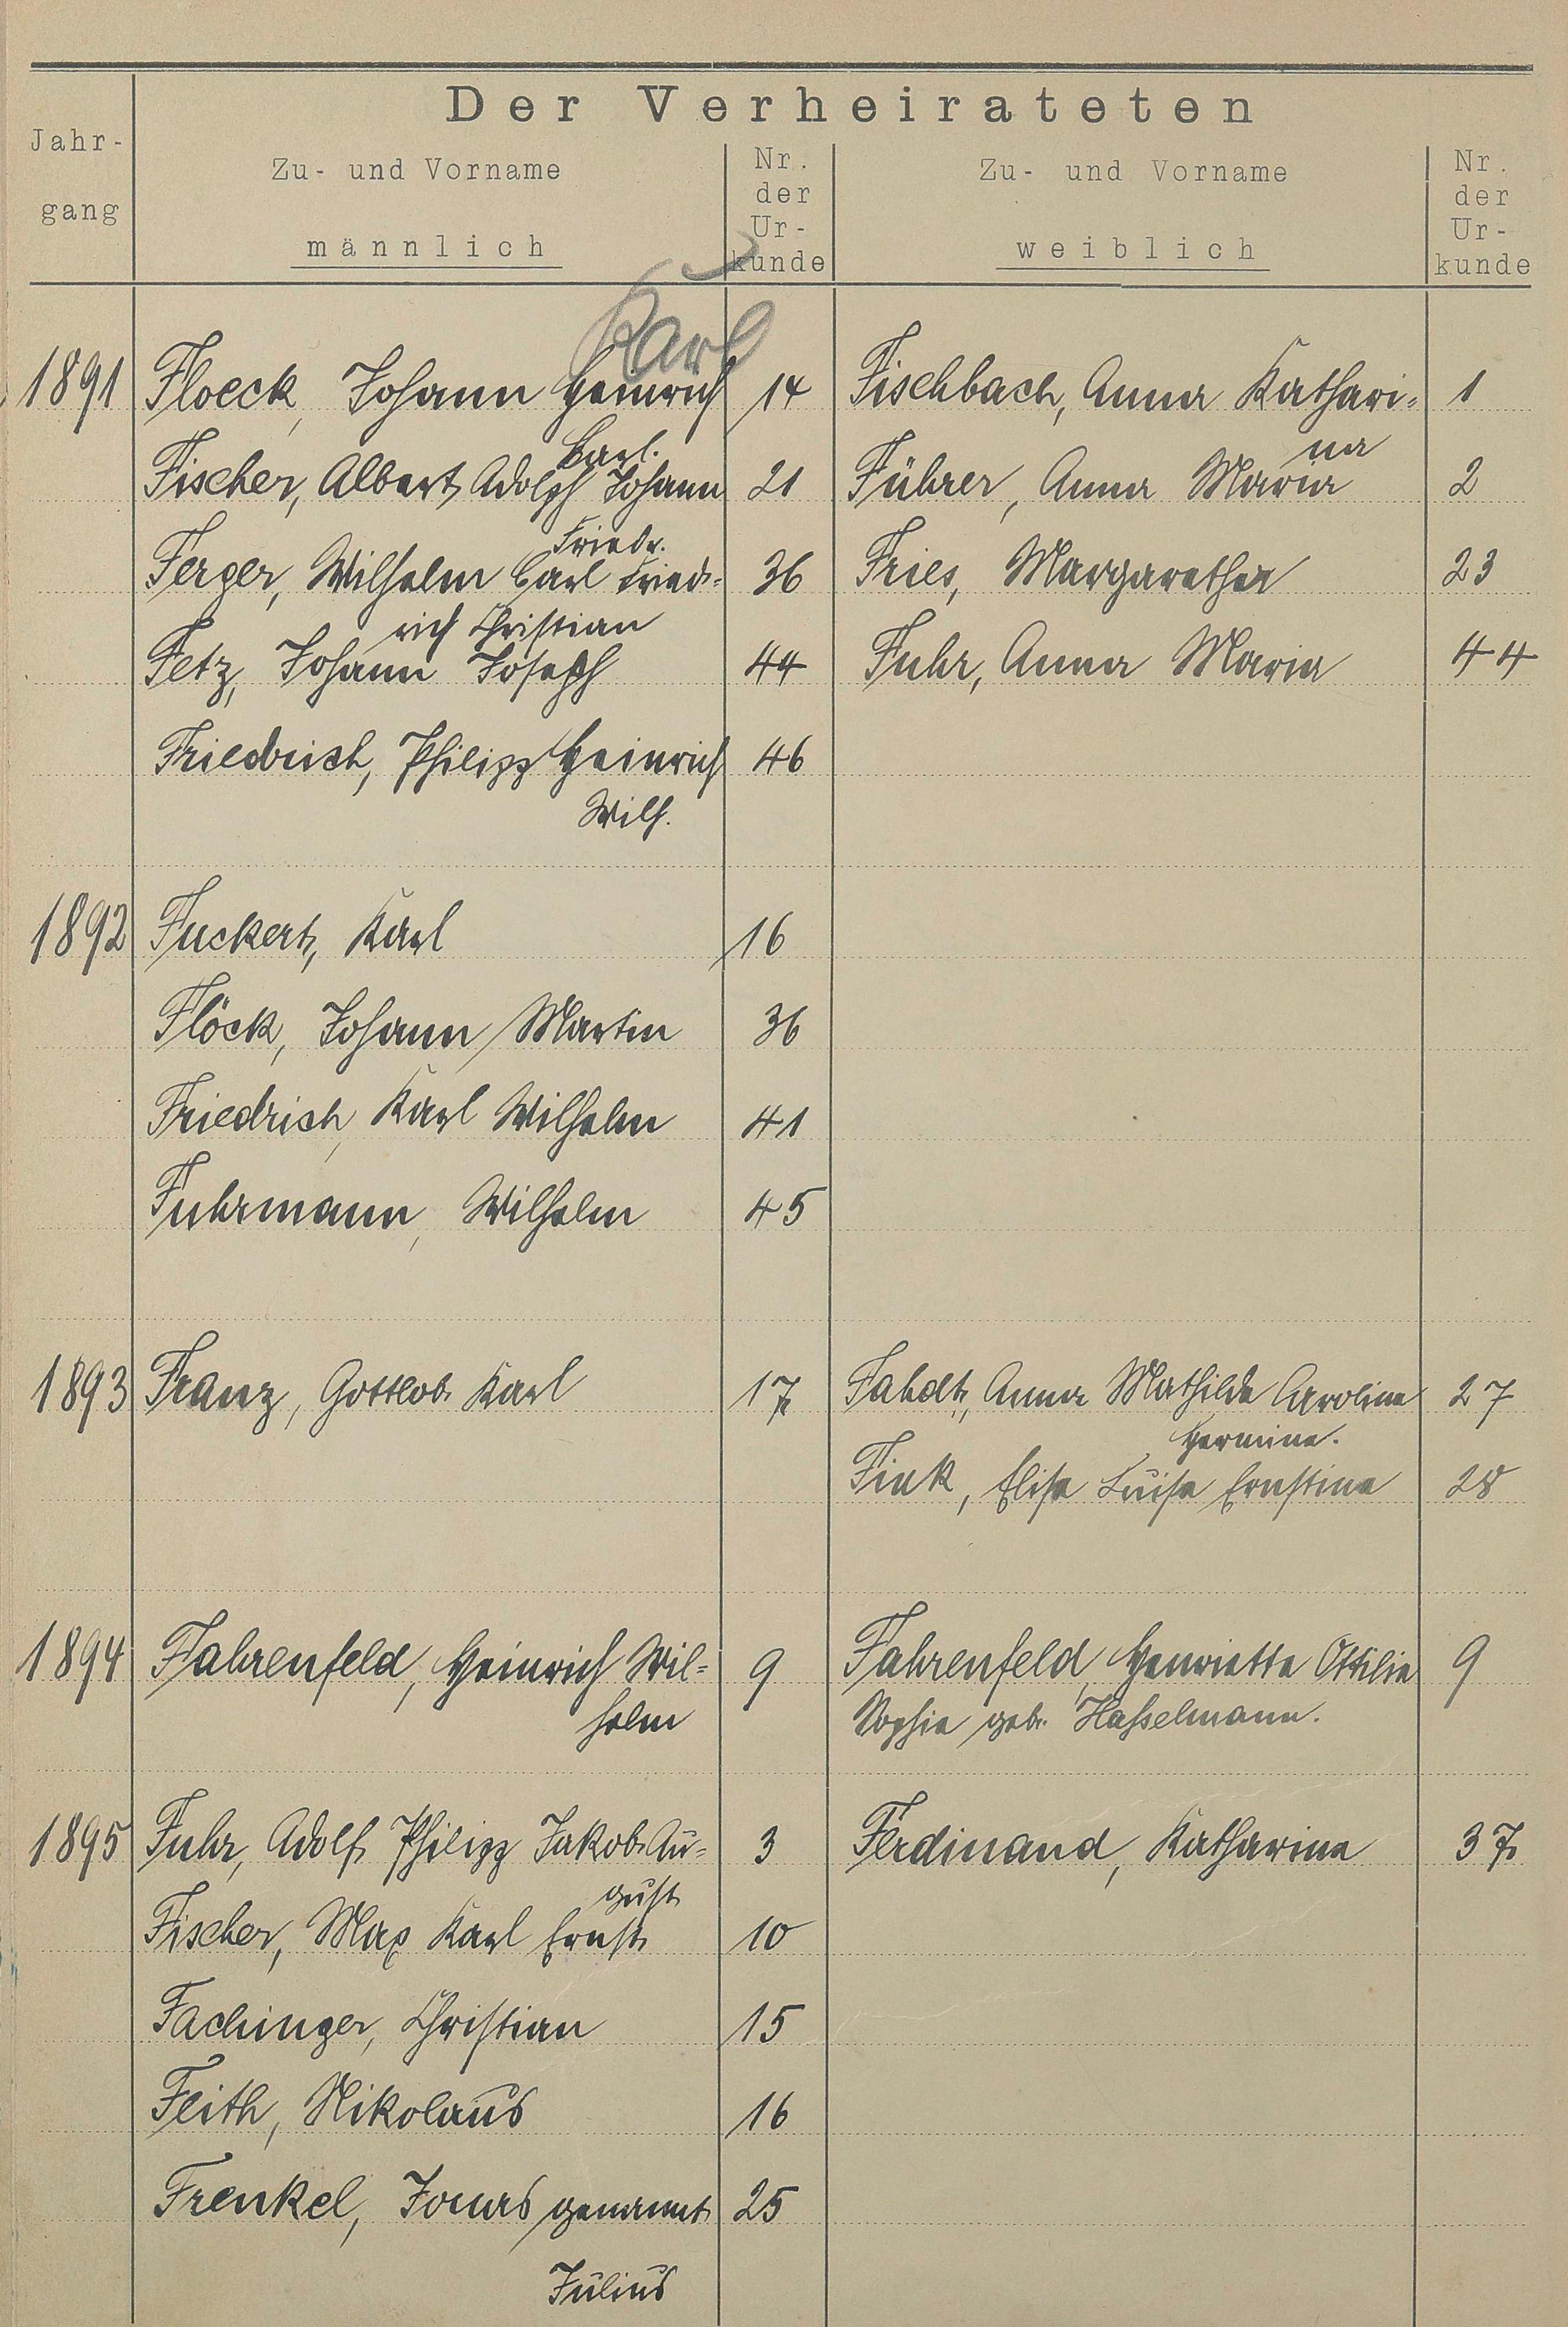 Der Verheirateten
Jahr-
gang
Zu- und Vorname
männlich
Nr.
der
Ur-
kunde
Zu- und Vorname
weiblich
Nr.
der
Ur-
kunde
Karl
1891 Floeck, Johann Heinrich 14 Fischbach, Anna Kathari- 1
Carl. na
Fischer, Albert Adolph Johann 21 Führer, Anna Maria 2
Friedr.
Ferger, Wilhelm Carl Fried- 36 Fries, Margaretha 23
rich Christian
Fetz, Johann Joseph 44 Fuhr, Anna Maria 44
Friedrich, Philipp Heinrich 46
Wilh.
1892 Fuckert, Karl 16
Flöck, Johann Martin 36
Friedrich, Karl Wilhelm 41
Fuhrmann, Wilhelm 45
1893 Franz, Gottlob Karl 17 Fahdt, Anna Mathilde Caroline 27
Hermine.
Fink, Elise Luise Ernstine 28
1894 Fahrenfeld, Heinrich Wil- 9 Fahrenfeld, Henriette Ottilie 9
helm Sophie geb. Haßelmann.
1895 Fuhr, Adolf Philipp Jakob Au- 3 Ferdinand, Katharina 37
gust
Fischer, Max Karl Ernst 10
Fachinger, Christian 15
Feith, Nikolaus 16
Frenkel, Jonas genannt 25
Julius